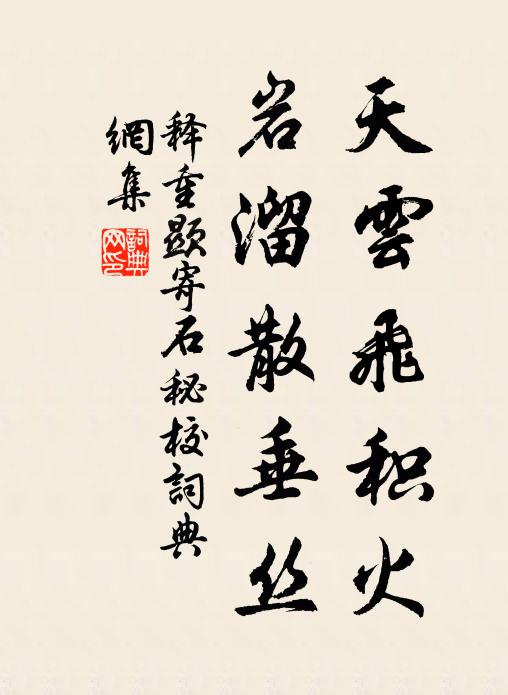 天雲飛积火
岩溜散垂丝
释重顯寄石秘校詞典
網集
詞典
网印